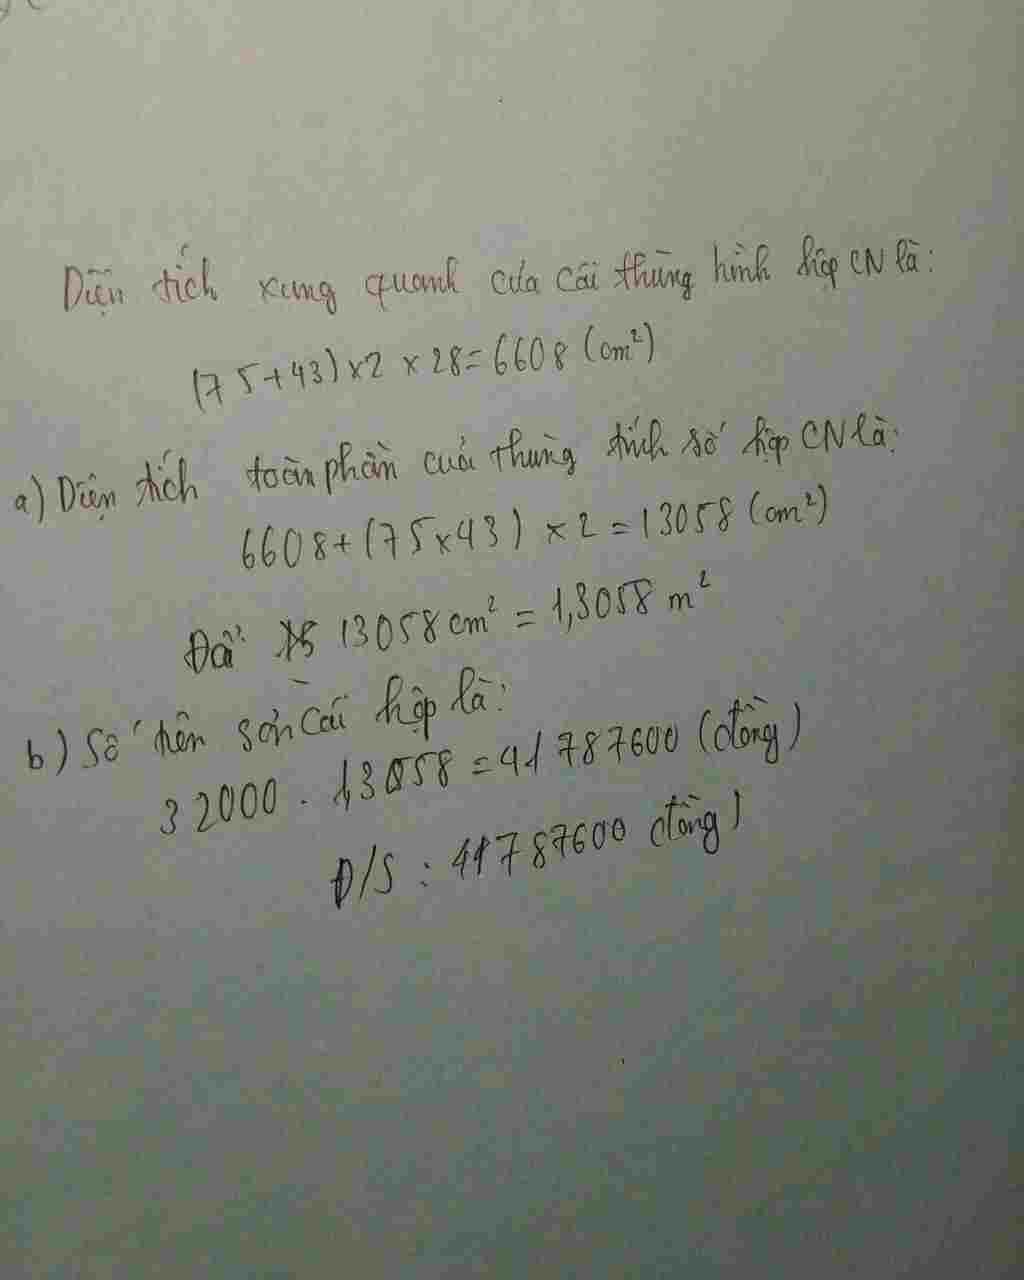 Diện tích xung quanh của cái thùng hình hộp CN là:
(75+43)x2 x 28=6608 (cm²)
a) Diện tích toàn phần của thùng tính số hộp CN là:
6608+(75x43) x 2=13058 (cm²)
Đổi 13058 cm² = 1,3058 m²
b) Số tiền sơn cái hộp là:
32000 . 1,3058 =41787600 (đồng)
Đ/S : 41787600 đồng)